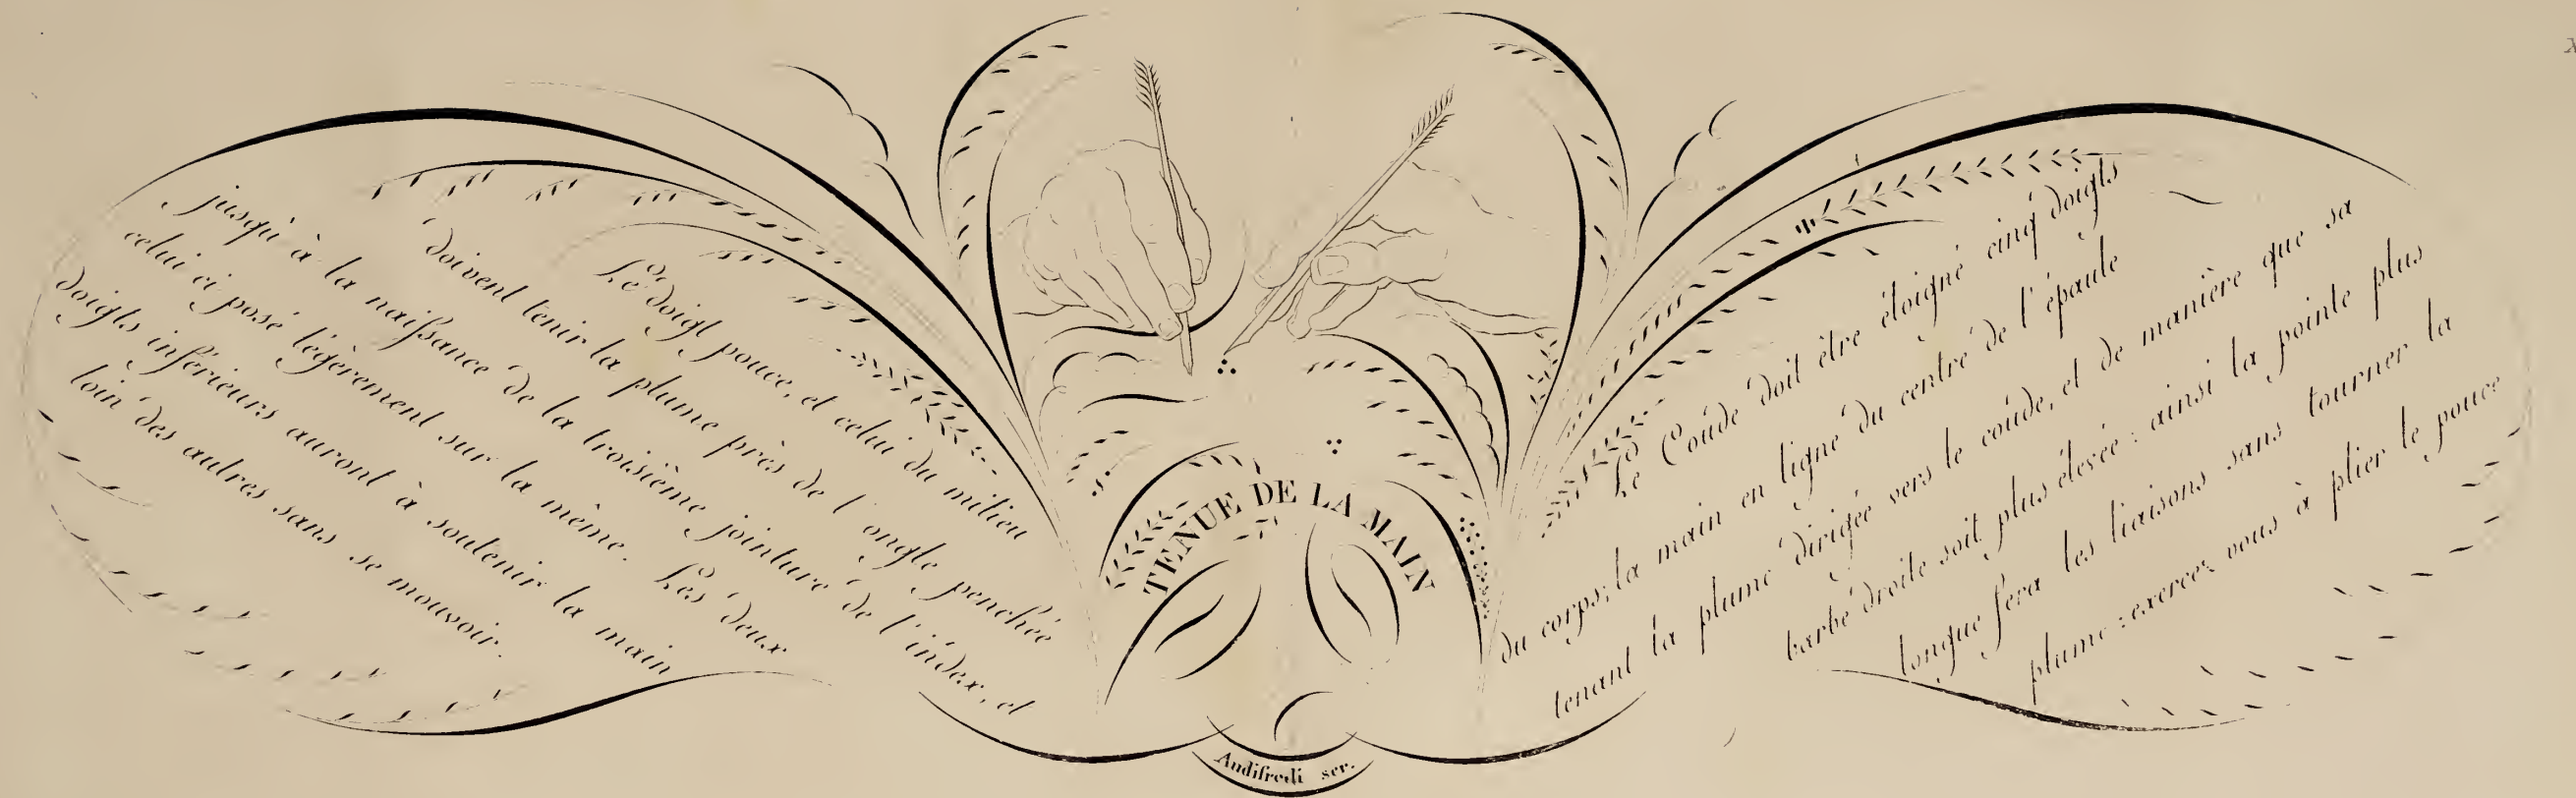 Le doigt pouce, et celui du milieu
doivent tenir la plume près de l'ongle penchée
jusqu'à la naiſsance de la troisième jointure de l'index, et
celui ci posé légèrement sur la même. Les deux
doigts inférieurs auront à soutenir la main
loin des autres sans se mouvoir.
TENUE DE LA MAIN
Andifredi scr.
Le Coude doit être éloigné cinq doigts
du corps; la main en ligne du centre de l'épaule
tenant la plume dirigée vers le coude, et de manière que sa
barbe droite soit plus élevée: ainsi la pointe plus
longue fera les liaisons sans tourner la
plume: exercez vous à plier le pouce